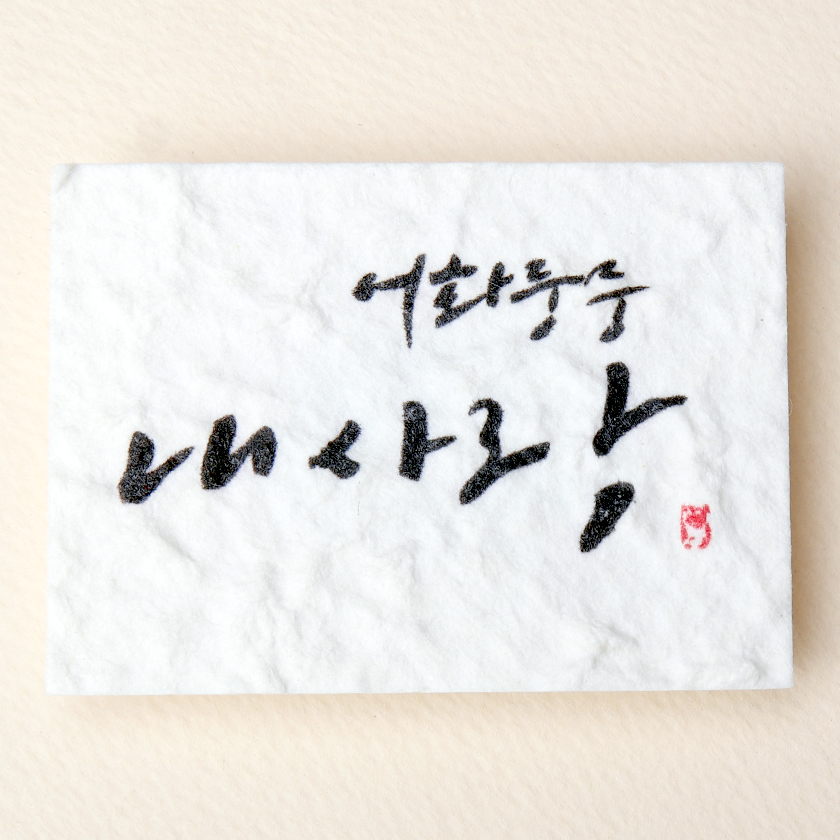 어화둥둥
내 사랑